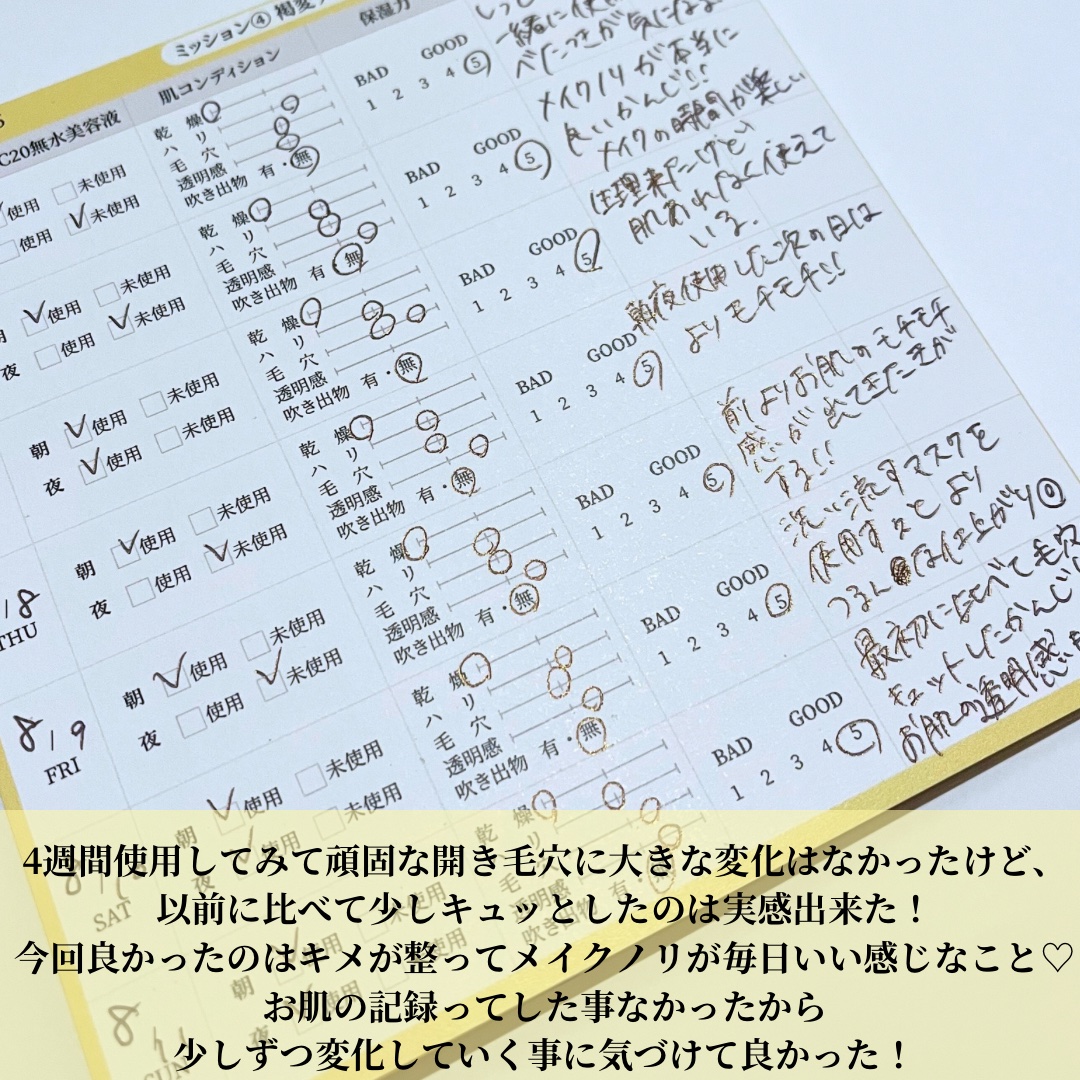 ミッション④ 褐変
保湿力
肌コンディション
C20無水美容液
一緒に使
べたつきが気にな
BAD GOOD
1 2 3 4 5
乾燥
ハリ
毛穴
透明感
吹き出物 有・無
使用 未使用
使用 未使用
メイクノリが本当に
良いかんじ!!
メイクの時間が楽しい
BAD GOOD
1 2 3 4 5
乾燥
ハリ
毛穴
透明感
吹き出物 有・無
使用 未使用
夜 使用 未使用
生理来たけど
肌あれなく使えて
いる.
BAD GOOD
1 2 3 4 5
乾燥
ハリ
毛穴
透明感
吹き出物 有・無
朝 使用 未使用
夜 使用 未使用
朝夜使用した次の日は
よりモチモチ!!
BAD GOOD
1 2 3 4 5
乾燥
ハリ
毛穴
透明感
吹き出物 有・無
18
THU
朝 使用 未使用
夜 使用 未使用
前よりお肌のモチモチ
感が出てきたきが
する!!
BAD GOOD
1 2 3 4 5
乾燥
ハリ
毛穴
透明感
吹き出物 有・無
8 / 9
FRI
朝 使用 未使用
夜 使用 未使用
洗い流すマスクを
使用すると より
つるんな仕上がり
BAD GOOD
1 2 3 4 5
乾燥
ハリ
毛穴
透明感
吹き出物 有・無
SAT
朝 使用 未使用
夜 使用 未使用
最初に比べて毛穴
キュットしたかんじ
お肌の透明感
BAD GOOD
1 2 3 4 5
乾燥
ハリ
毛穴
透明感
吹き出物 有・無
8
SUN
朝 使用 未使用
夜 使用 未使用
4週間使用してみて頑固な開き毛穴に大きな変化はなかったけど、
以前に比べて少しキュッとしたのは実感出来た！
今回良かったのはキメが整ってメイクノリが毎日いい感じなこと♡
お肌の記録ってした事なかったから
少しずつ変化していく事に気づけて良かった！